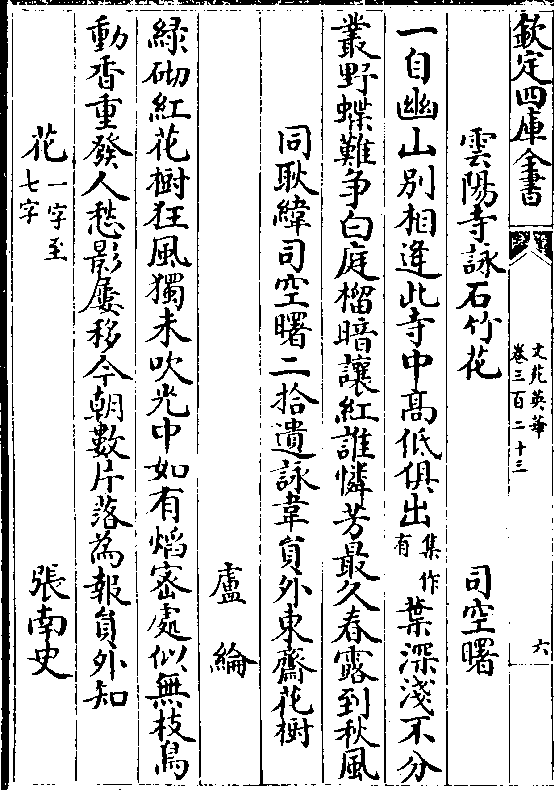 欽定四庫全書
文苑英華
卷三百二十三
六
雲陽寺詠石竹花
司空曙
一自幽山別相逢此寺中髙低俱出集作有葉深淺不分
叢野蝶難争白庭榴暗讓紅誰憐芳最久春露到秋風
同耿緯司空曙二拾遺詠韋員外東齋花樹
盧綸
綠砌紅花樹狂風獨未吹光中如有熖密處似無枝鳥
動香重發人愁影屢移今朝數片落為報員外知
花一字至七字
張南史